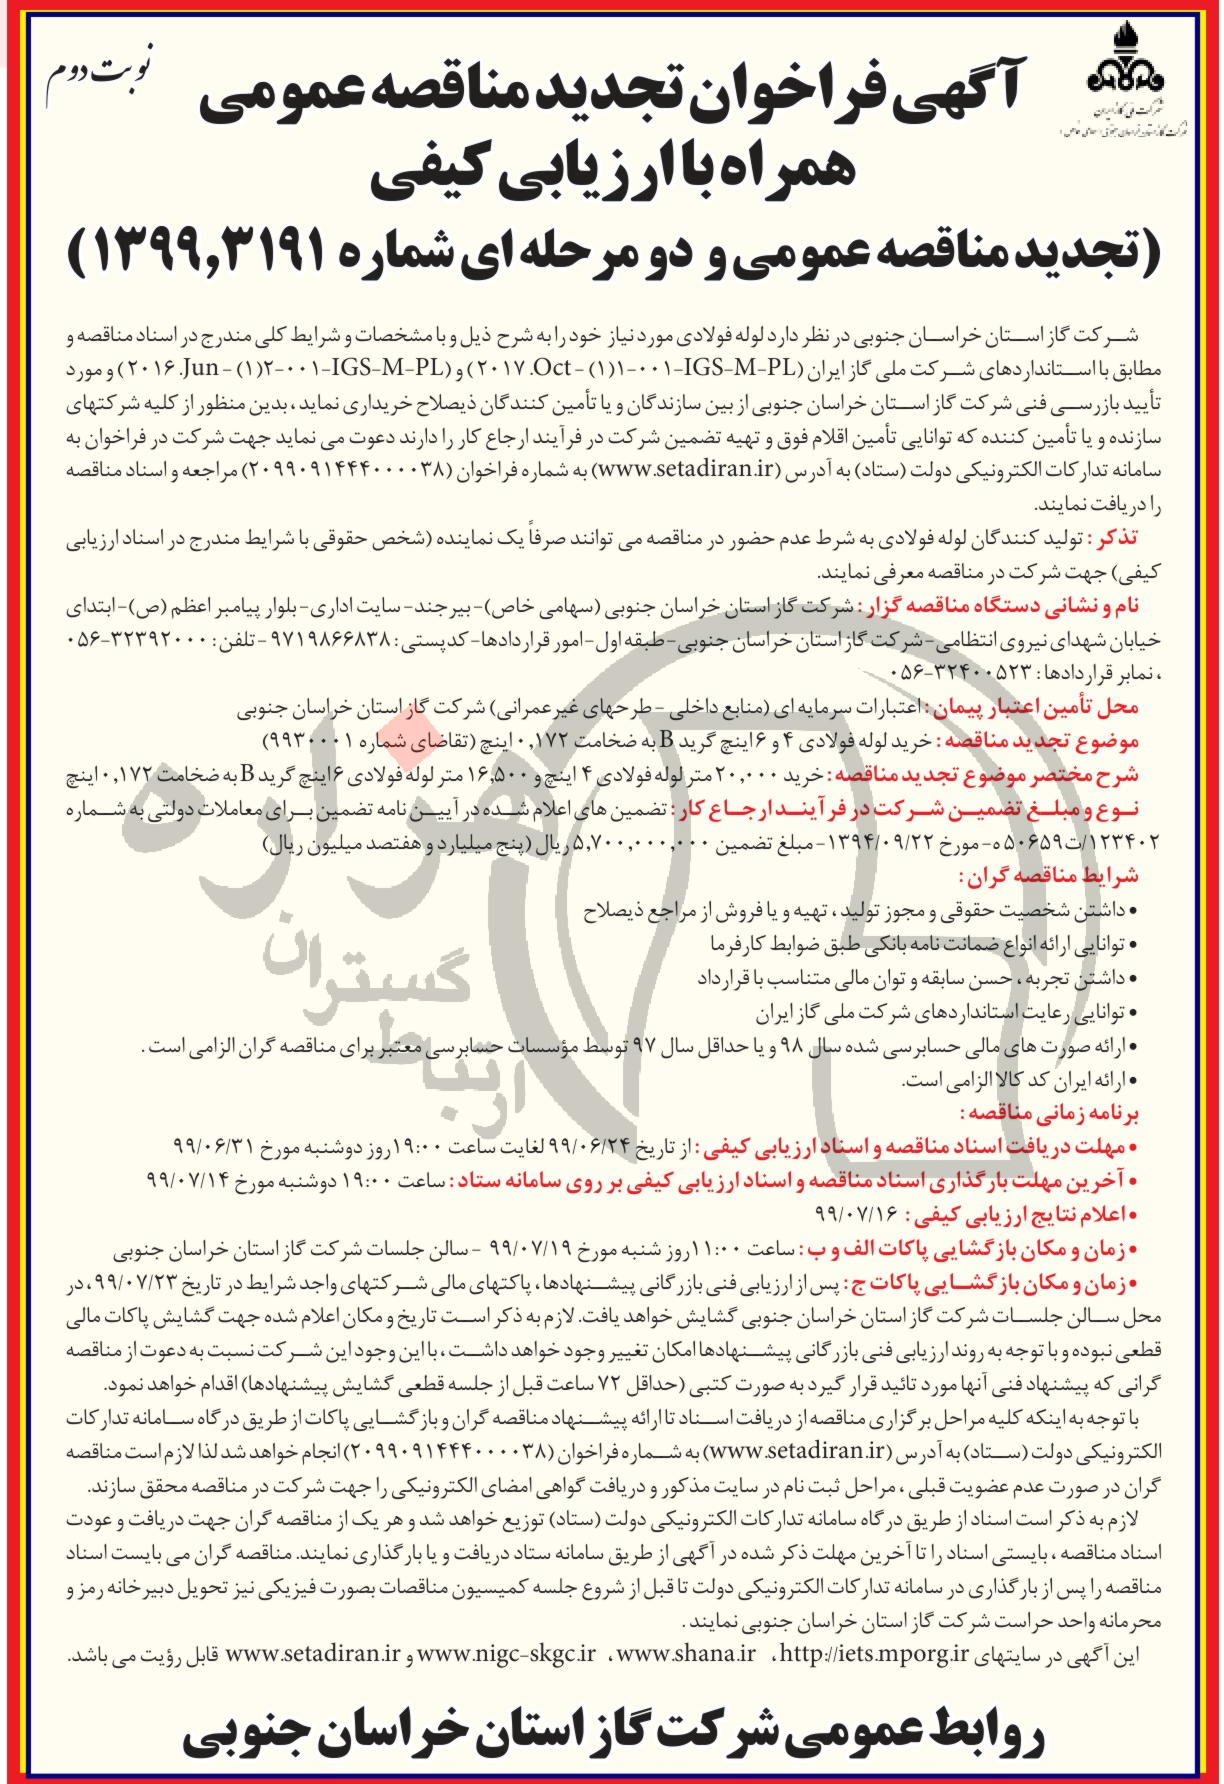 نوبت دوم
شرکت ملی گاز ایران
آگهی فراخوان تجدید مناقصه عمومی
همراه با ارزیابی کیفی
(تجدید مناقصه عمومی و دو مرحله ای شماره ۱۳۹۹,۳۱۹۱)
شرکت گاز استان خراسان جنوبی در نظر دارد لوله فولادی مورد نیاز خود را به شرح ذیل و با مشخصات و شرایط کلی مندرج در اسناد مناقصه و
مطابق با استانداردهای شرکت ملی گاز ایران (IGS-M-PL-۰۰۱-۱(۱) - Oct. ۲۰۱۷) و (IGS-M-PL-۰۰۱-۲(۱) - Jun. ۲۰۱۶) و مورد
تأیید بازرسی فنی شرکت گاز استان خراسان جنوبی از بین سازندگان و یا تأمین کنندگان ذیصلاح خریداری نماید، بدین منظور از کلیه شرکتهای
سازنده و یا تأمین کننده که توانایی تأمین اقلام فوق و تهیه تضمین شرکت در فرآیند ارجاع کار را دارند دعوت می نماید جهت شرکت در فراخوان به
سامانه تدارکات الکترونیکی دولت (ستاد) به آدرس (www.setadiran.ir) به شماره فراخوان (۲۰۹۹۰۹۱۴۴۴۰۰۰۰۳۸) مراجعه و اسناد مناقصه
را دریافت نمایند.
تذکر : تولید کنندگان لوله فولادی به شرط عدم حضور در مناقصه می توانند صرفاً یک نماینده (شخص حقوقی با شرایط مندرج در اسناد ارزیابی
کیفی) جهت شرکت در مناقصه معرفی نمایند.
نام و نشانی دستگاه مناقصه گزار : شرکت گاز استان خراسان جنوبی (سهامی خاص)-بیرجند-سایت اداری-بلوار پیامبر اعظم (ص)-ابتدای
خیابان شهدای نیروی انتظامی-شرکت گاز استان خراسان جنوبی-طبقه اول-امور قراردادها-کدپستی : ۹۷۱۹۸۶۶۸۳۸ - تلفن : ۳۲۳۹۲۰۰۰-۰۵۶
، نمابر قراردادها : ۳۲۴۰۰۵۲۳-۰۵۶
محل تأمین اعتبار پیمان : اعتبارات سرمایه ای (منابع داخلی - طرحهای غیرعمرانی) شرکت گاز استان خراسان جنوبی
موضوع تجدید مناقصه : خرید لوله فولادی ۴ و ۶ اینچ گرید B به ضخامت ۰,۱۷۲ اینچ (تقاضای شماره ۹۹۳۰۰۰۱)
شرح مختصر موضوع تجدید مناقصه : خرید ۲۰,۰۰۰ متر لوله فولادی ۴ اینچ و ۱۶,۵۰۰ متر لوله فولادی ۶ اینچ گرید B به ضخامت ۰,۱۷۲ اینچ
نوع و مبلغ تضمین شرکت در فرآیند ارجاع کار : تضمین های اعلام شده در آیین نامه تضمین برای معاملات دولتی به شماره
۱۲۳۴۰۲/ت۵۰۶۵۹ه-مورخ ۱۳۹۴/۰۹/۲۲-مبلغ تضمین ۵,۷۰۰,۰۰۰,۰۰۰ ریال (پنج میلیارد و هفتصد میلیون ریال)
شرایط مناقصه گران :
• داشتن شخصیت حقوقی و مجوز تولید، تهیه و یا فروش از مراجع ذیصلاح
• توانایی ارائه انواع ضمانت نامه بانکی طبق ضوابط کارفرما
• داشتن تجربه، حسن سابقه و توان مالی متناسب با قرارداد
• توانایی رعایت استانداردهای شرکت ملی گاز ایران
• ارائه صورت های مالی حسابرسی شده سال ۹۸ و یا حداقل سال ۹۷ توسط مؤسسات حسابرسی معتبر برای مناقصه گران الزامی است .
• ارائه ایران کد کالا الزامی است.
برنامه زمانی مناقصه :
• مهلت دریافت اسناد مناقصه و اسناد ارزیابی کیفی : از تاریخ ۹۹/۰۶/۲۴ لغایت ساعت ۱۹:۰۰ روز دوشنبه مورخ ۹۹/۰۶/۳۱
• آخرین مهلت بارگذاری اسناد مناقصه و اسناد ارزیابی کیفی بر روی سامانه ستاد : ساعت ۱۹:۰۰ دوشنبه مورخ ۹۹/۰۷/۱۴
• اعلام نتایج ارزیابی کیفی : ۹۹/۰۷/۱۶
• زمان و مکان بازگشایی پاکات الف و ب : ساعت ۱۱:۰۰ روز شنبه مورخ ۹۹/۰۷/۱۹ - سالن جلسات شرکت گاز استان خراسان جنوبی
• زمان و مکان بازگشایی پاکات ج : پس از ارزیابی فنی بازرگانی پیشنهادها، پاکتهای مالی شرکتهای واجد شرایط در تاریخ ۹۹/۰۷/۲۳، در
محل سالن جلسات شرکت گاز استان خراسان جنوبی گشایش خواهد یافت. لازم به ذکر است تاریخ و مکان اعلام شده جهت گشایش پاکات مالی
قطعی نبوده و با توجه به روند ارزیابی فنی بازرگانی پیشنهادها امکان تغییر وجود خواهد داشت، با این وجود این شرکت نسبت به دعوت از مناقصه
گرانی که پیشنهاد فنی آنها مورد تائید قرار گیرد به صورت کتبی (حداقل ۷۲ ساعت قبل از جلسه قطعی گشایش پیشنهادها) اقدام خواهد نمود.
با توجه به اینکه کلیه مراحل برگزاری مناقصه از دریافت اسناد تا ارائه پیشنهاد مناقصه گران و بازگشایی پاکات از طریق درگاه سامانه تدارکات
الکترونیکی دولت (ستاد) به آدرس (www.setadiran.ir) به شماره فراخوان (۲۰۹۹۰۹۱۴۴۴۰۰۰۰۳۸) انجام خواهد شد لذا لازم است مناقصه
گران در صورت عدم عضویت قبلی، مراحل ثبت نام در سایت مذکور و دریافت گواهی امضای الکترونیکی را جهت شرکت در مناقصه محقق سازند.
لازم به ذکر است اسناد از طریق درگاه سامانه تدارکات الکترونیکی دولت (ستاد) توزیع خواهد شد و هر یک از مناقصه گران جهت دریافت و عودت
اسناد مناقصه، بایستی اسناد را تا آخرین مهلت ذکر شده در آگهی از طریق سامانه ستاد دریافت و یا بارگذاری نمایند. مناقصه گران می بایست اسناد
مناقصه را پس از بارگذاری در سامانه تدارکات الکترونیکی دولت تا قبل از شروع جلسه کمیسیون مناقصات بصورت فیزیکی نیز تحویل دبیرخانه رمز و
محرمانه واحد حراست شرکت گاز استان خراسان جنوبی نمایند .
این آگهی در سایتهای http://iets.mporg.ir ، www.shana.ir ، www.nigc-skgc.ir و www.setadiran.ir قابل رؤیت می باشد.
روابط عمومی شرکت گاز استان خراسان جنوبی
هزاره
گستران
ارتباط